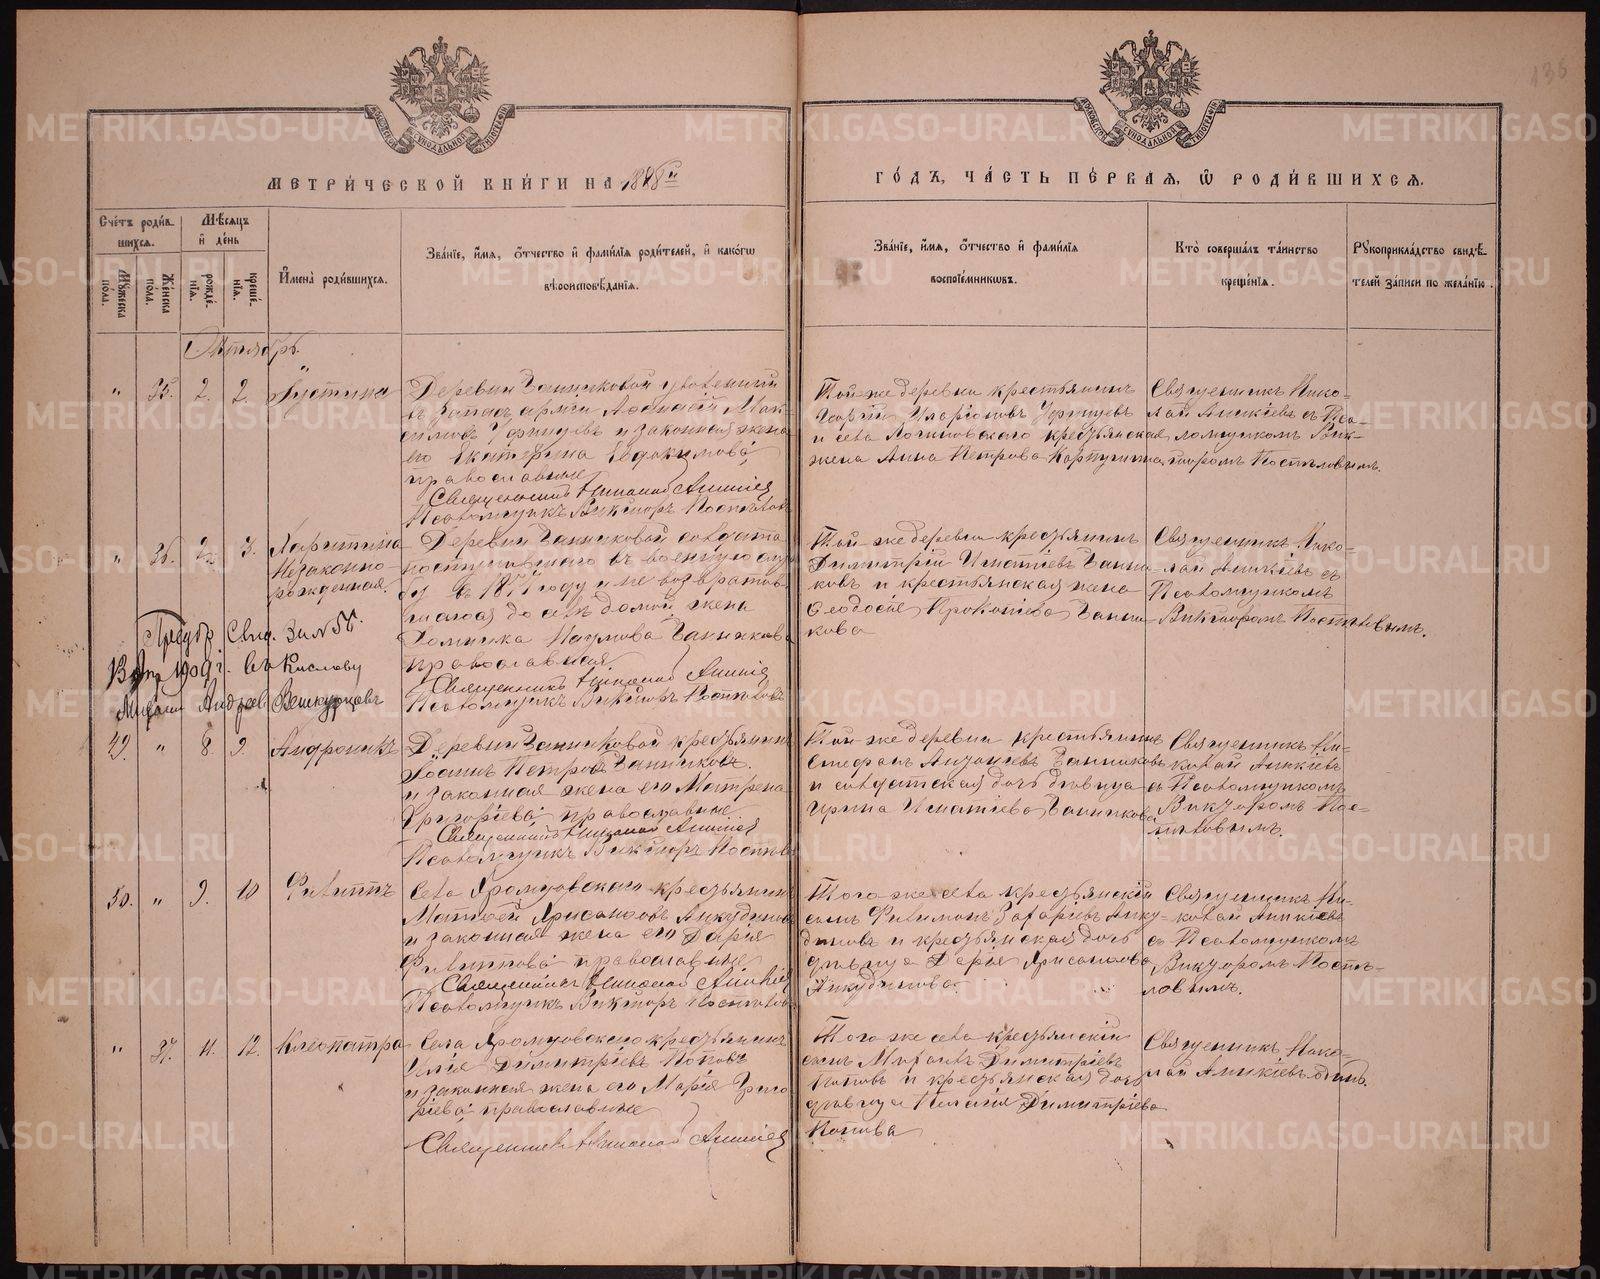 МЕТРИ́ЧЕСКОЙ КНИ́ГИ НА 1878й
ГО́ДЪ, ЧА́СТЬ ПЕ́РВАЯ, Ѽ РОДИ́ВШИХСЯ.
136
Сче́тъ роди́в-
шихся.
Мѣ́сяцъ
и҆ де́нь
Мꙋ́жеска пола.
Же́нска пола.
рожде́нїя.
креще́нїя.
И҆мена̀ роди́вшихся.
Зва́нїе, и҆́мя, ѻ҆́тчество и҆ фами́лїя роди́телей, и҆ како́гѡ
вѣроисповѣ́данїя.
Зва́нїе, и҆́мя, ѻ҆́тчество и҆ фами́лїя
воспрїе́мникѡвъ.
Кто̀ соверша́лъ та́инство
креще́нїя.
Рꙋкоприкла́дство свидѣ́-
телей за́писи по жела́нїю.
Октябрь
" 35. 2. 2. Іустина
Деревни Банниковой уволенный
въ Запас арміи
Уфинцевъ и законная жена
его Екатерина Евдокимова
православные
Священникъ Николай Аникіев
Псаломщикъ Викторъ Постѣловъ
Той же деревни крестьянинъ
Георгій Иларіоновъ Уфинцевъ
и села крестьянская
жена Анна Петрова
Священникъ Нико-
лай Аникіевъ съ Пса-
ломщикомъ Вик-
торомъ Постѣловымъ.
" 36. 2. 3. Харитина
Незаконно
рожденная.
Деревни Банниковой солдата
поступившаго въ военную служ
бу въ 1871 году и не возвратив
шагося до селѣ домой, жена
Домника Наумова Банникова
православная
Священникъ Николай Аникіев
Псаломщикъ Викторъ Постѣловъ
Той же деревни крестьянинъ
Димитрій Игнатіевъ Банни-
ковъ и крестьянская жена
Ѳеодосія Прокопіева Банни-
кова
Священникъ Нико-
лай Аникіевъ съ
Псаломщикомъ
Викторомъ Постѣловымъ.
Свид. За №
1909 г. въ
Андреев
49. " 8. 9. Андроникъ
Деревни Банниковой крестьянинъ
Іоаннъ Петровъ Банниковъ.
и законная жена его Матрена
Григоріева православные
Священникъ Николай Аникіев
Псаломщикъ Викторъ Постѣлов
Той же деревни крестьянинъ
Стефанъ Антоніевъ Банниковъ
и солдатская дочь дѣвица
Ирина Игнатіева Банникова
Священникъ Ни-
колай Аникіевъ
съ Псаломщикомъ
Викторомъ Пос-
тѣловымъ.
50. " 9. 10 Филиппъ
Села Яромцовскаго крестьянинъ
Матѳей Хрисанѳовъ Анкудиновъ
и законная жена его Дарія
Филиппова православные
Священникъ Николай Аникіев
Псаломщикъ Викторъ Постѣловъ
Того же села крестьянскій
сынъ Филимонъ Захаріевъ Анку-
диновъ и крестьянская дочь
дѣвица Дарія Хрисанѳова
Анкудинова.
Священникъ Ни-
колай Аникіевъ
съ Псаломщикомъ
Викторомъ Постѣ-
ловымъ.
" 37. 11. 12. Клеопатра
Села Яромцовскаго крестьянинъ
Илія Димитріевъ Поповъ
и законная жена его Марія Григо
ріева православные
Священникъ Николай Аникіев
Того же села крестьянскій
сынъ Михаилъ Димитріевъ
Поповъ и крестьянская дочь
дѣвица Пелагія Димитріева
Попова
Священникъ Нико-
лай Аникіевъ одинъ.